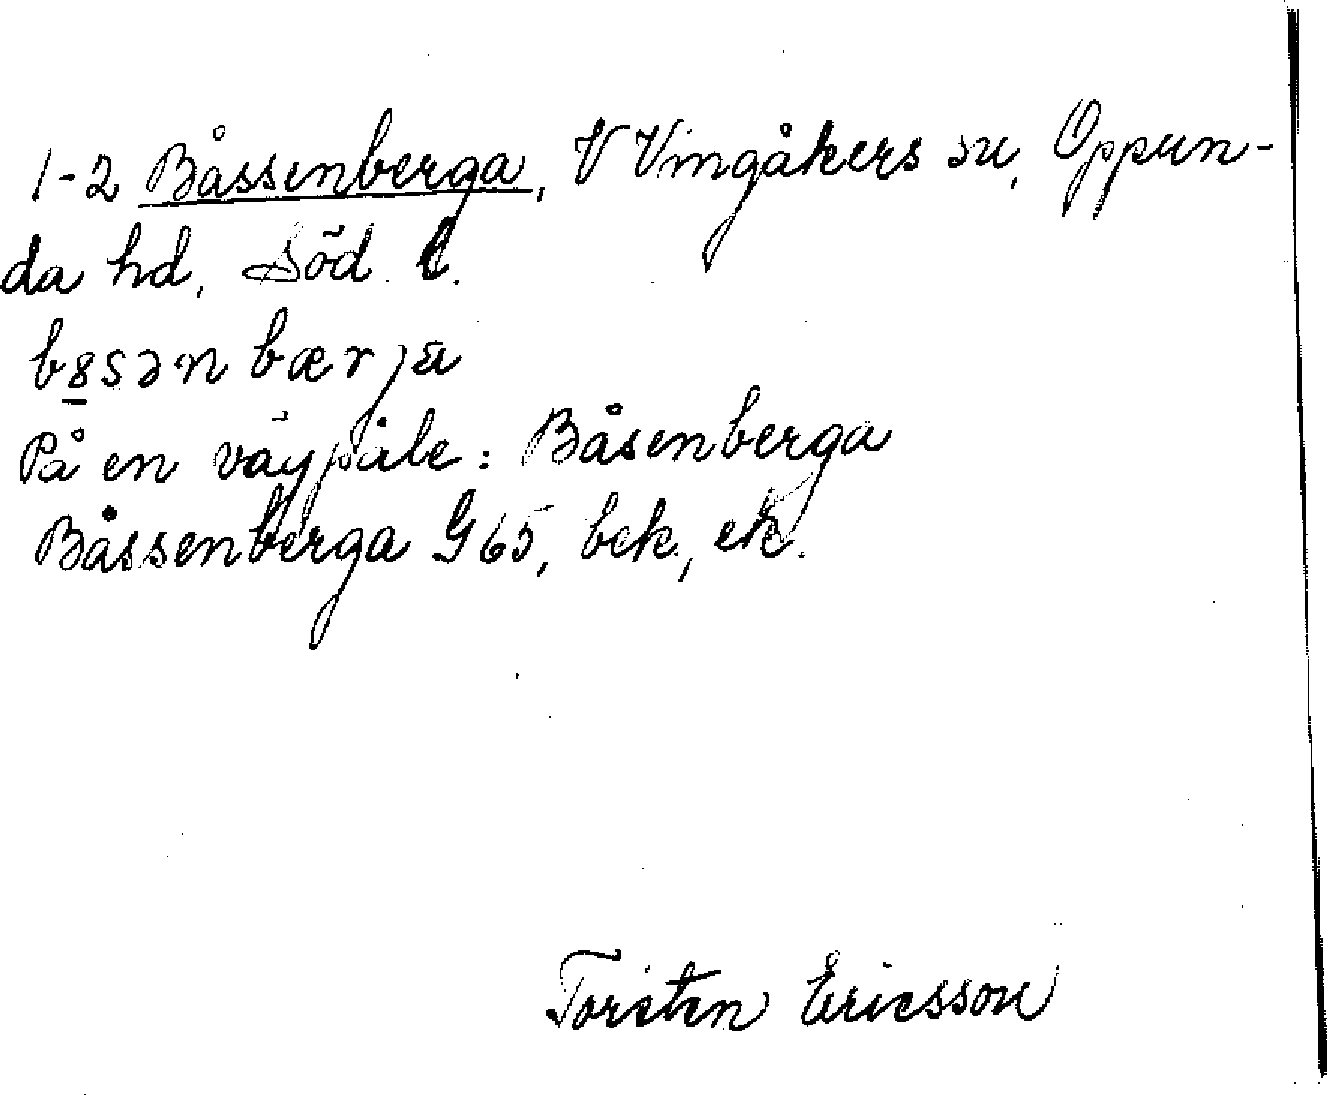 1-2 Båssenberga, V Vingåkers sn, Oppun-
da hd, Söd. l.
b8sən bærja
På en vägpåle: Båsenberga
Båssenberga G 65, bek., ek.
Torsten Ericsson